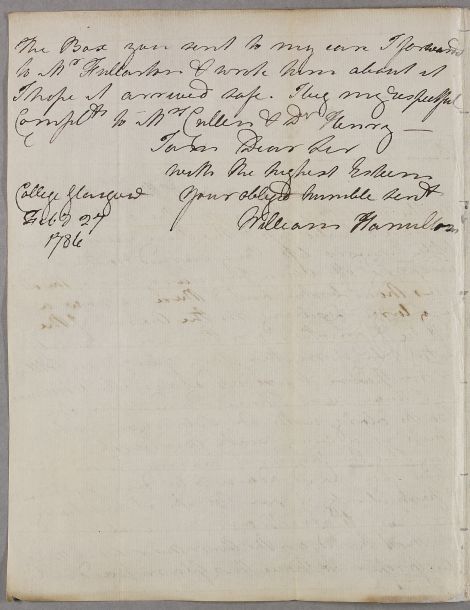 The Box you sent to my care I forwarded
to Mr Fullarton & wrote him about it
I hope it arrived safe. I beg my respectful
Complts to Mrs Cullen & Dr Henry —
I am Dear Sir
with the highest Esteem
College Glasgow your obliged humble servt
Feby 27 William Hamilton
1786